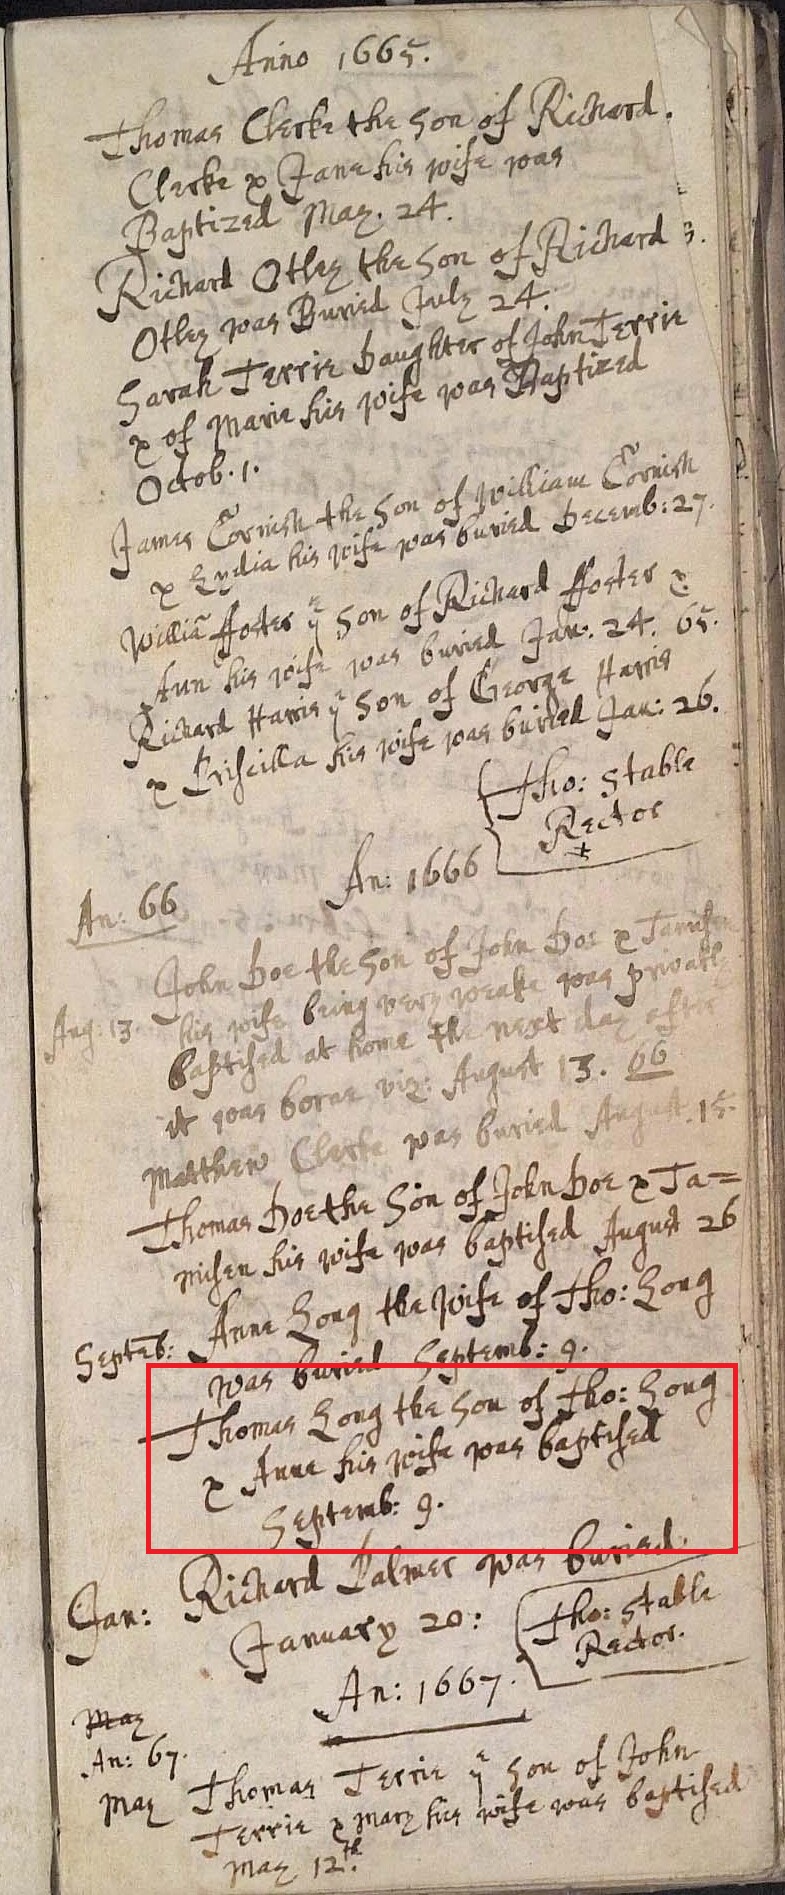 Anno 1665.
Thomas Clerke the Son of Richard.
Clerke & Jane his wife was
Baptized May. 24.
Richard Otley the Son of Richard 3.
Otley was Buried July 24.
Sarah Terrie Daughter of John Terrie
& of Marie his wife was Baptized
Octob. 1.
James Cornish the Son of William Cornish
& Lydia his wife was buried Decemb: 27.
Williā ffoster yᵉ Son of Richard ffoster &
Ann his wife was buried Jan. 24. 65.
Richard Harris yᵉ Son of George Harris
& Priscilla his wife was buried Jan: 26.
Tho: Stable
Rector
An: 1666
An: 66
John Doe the Son of John Doe & Tamisen
Aug: 13. his wife being very weake was privatly
baptised at home the next day after
it was borne viz: August 13. 66
Matthew Clerke was buried August. 15.
Thomas Doe the Son of John Doe & Ta=
misen his wife was baptised August 26
Septeb: Anne Long the Wife of Tho: Long
was buried Septemb: 9.
Thomas Long the Son of Tho: Long
& Anne his wife was baptised
Septemb: 9.
Jan: Richard Palmer was buried.
January 20:
Tho: Stable
Rector.
An: 1667.
May
An: 67.
May Thomas Terrie yᵉ Son of John
Terrie & Mary his wife was baptised
May 12th.